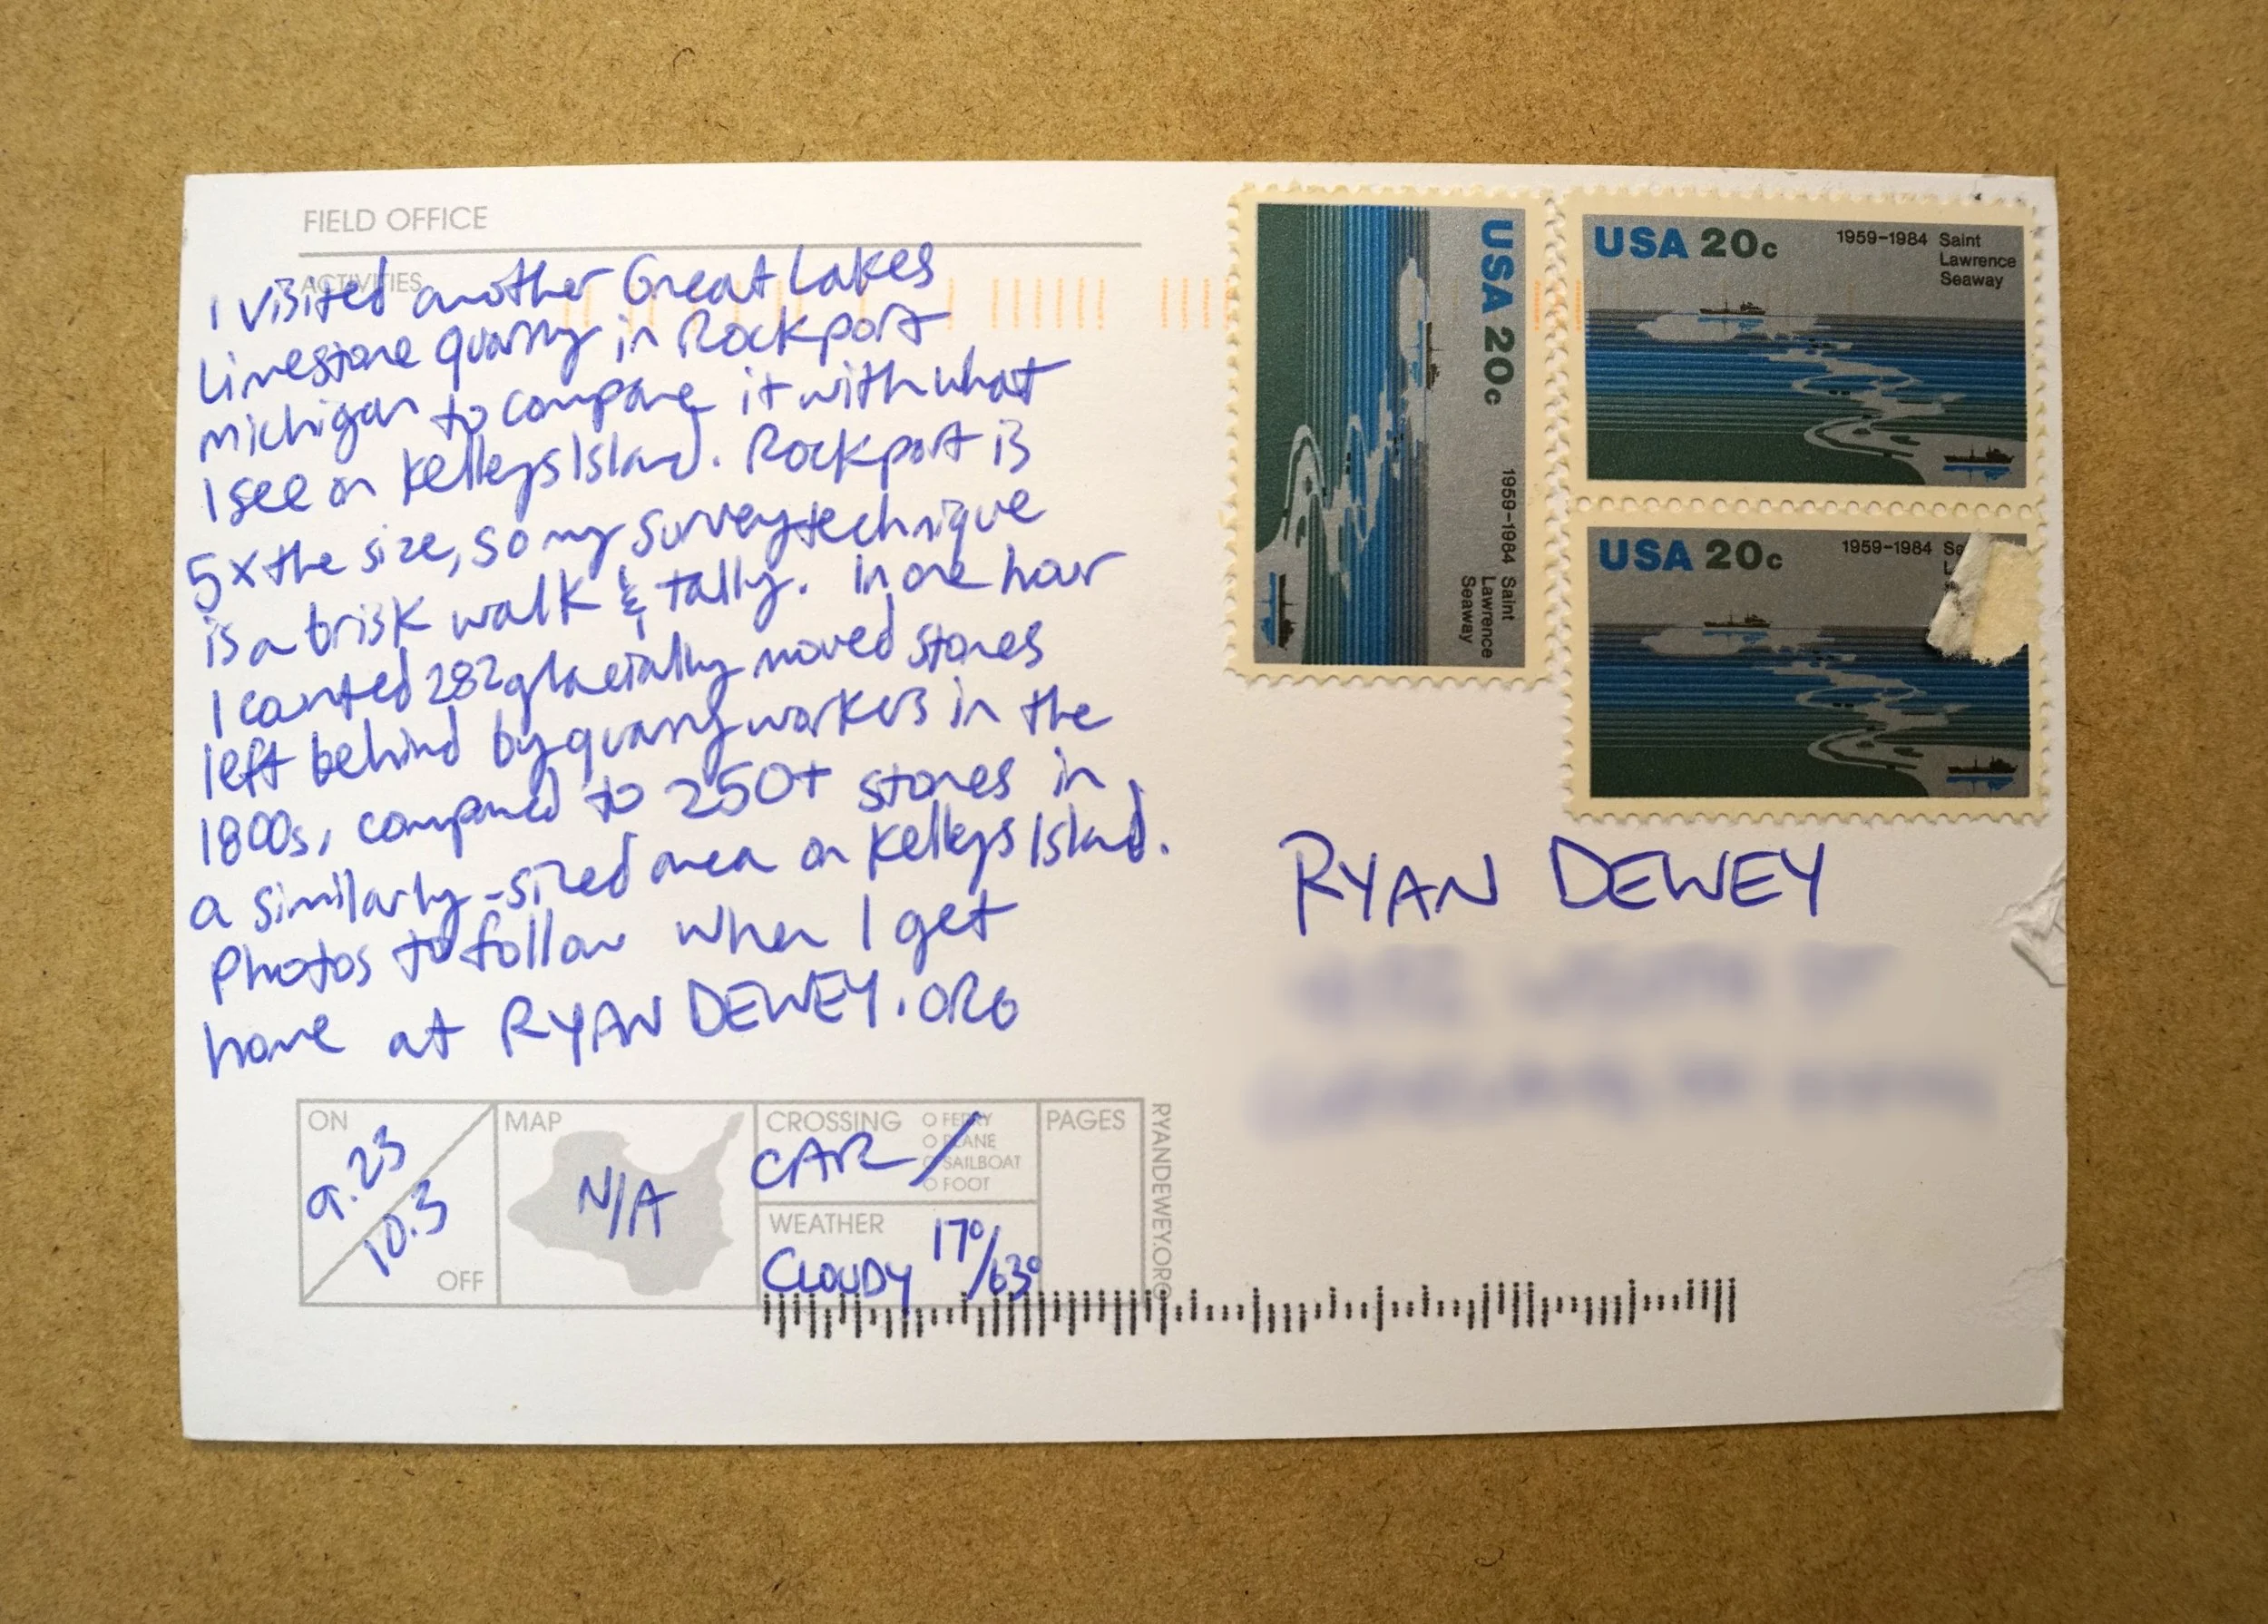 FIELD OFFICE
ACTIVITIES
I visited another Great Lakes
Limestone quarry in Rockport
michigan to compare it with what
I see on Kelleys Island. Rockport is
5x the size, so my survey technique
is a brisk walk & tally. In one hour
I counted 282 glacially moved stones
left behind by quarry workers in the
1800s, compared to 250+ stones in
a similarly-sized area on Kelleys Island.
Photos to follow when I get
home at RYAN DEWEY.ORG
ON
9.23
10.3
OFF
MAP
N/A
CROSSING
O FERRY
O PLANE
O SAILBOAT
O FOOT
CAR
WEATHER
CLOUDY 17°/63°
PAGES
RYANDEWEY.ORG
USA 20c
1959-1984 Saint
Lawrence
Seaway
USA 20c 1959-1984 Saint
Lawrence
Seaway
USA 20c 1959-1984
RYAN DEWEY